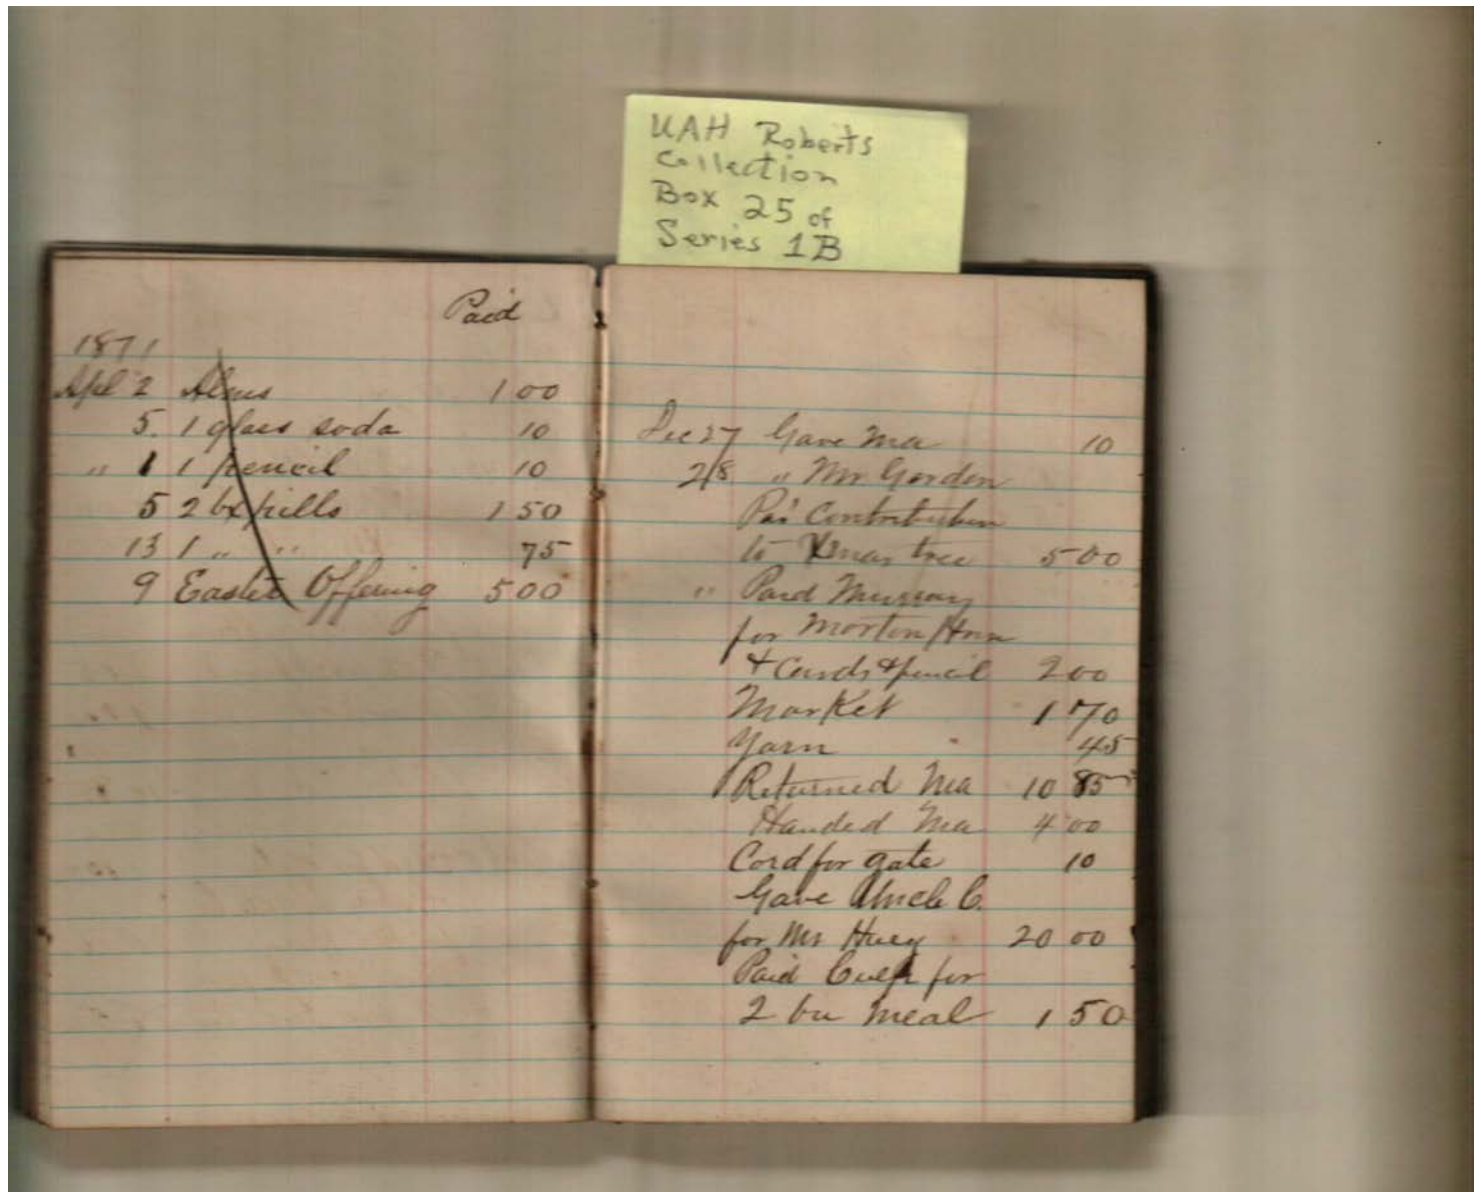 UAH Roberts
Collection
Box 25 of
Series 1B
Paid
1871
Apl 2 Alms 1 00
5. 1 glass soda 10
" 1 1 pencil 10
5 2 bx pills 1 50
13 1 " " 75
9 Easter Offering 5 00
Dec 27 Gave Ma 10
28 " Mr Gordon
Pa's Contribution
to Xmas tree 5 00
" Paid Murray
for Morton
& Cards & pencil 2 00
Market 1 70
Yarn 45
Returned Ma 10 85
Handed Ma 4 00
Cord for gate 10
Gave Uncle C.
for Mr Huey 20 00
Paid for
2 bu meal 1 50